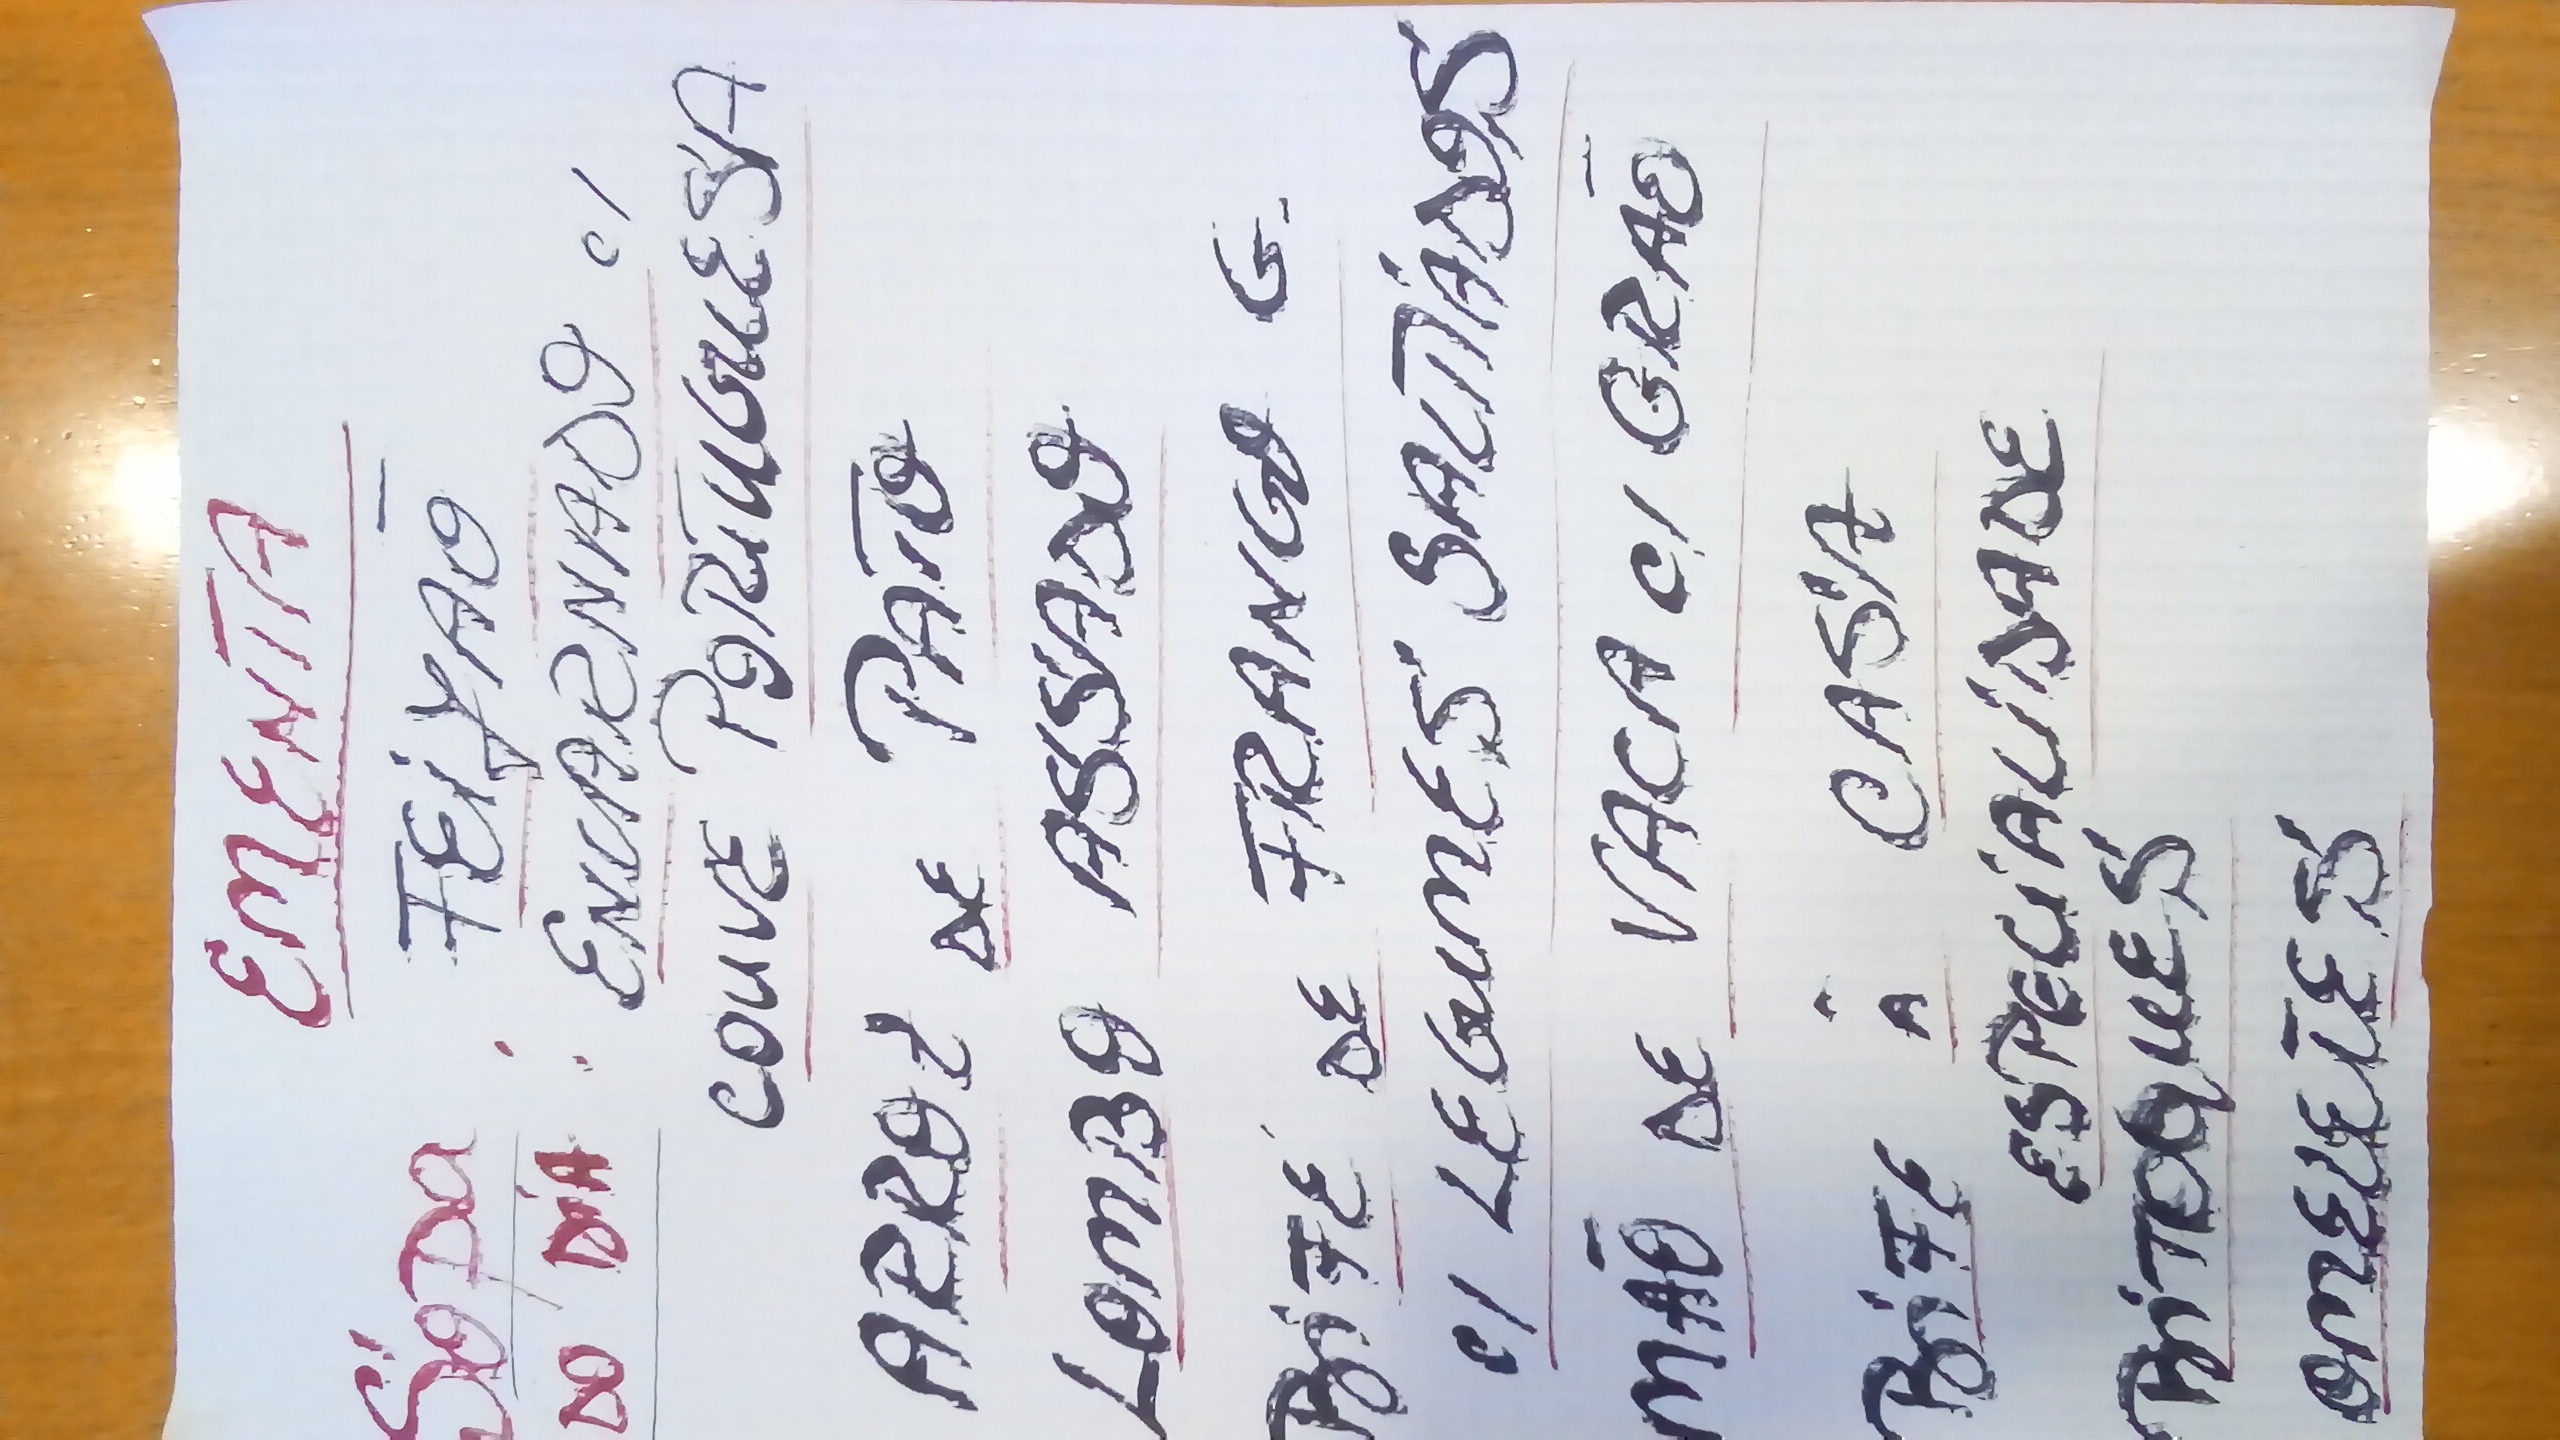 EMENTA
Sopa : FEIJÃO
DO DIA : ENCARNADO c/
COUVE PORTUGUESA
ARROZ DE PATO
LOMBO ASSADO
BIFE DE FRANGO G.
c/ LEGUMES SALTIADOS
MÃO DE VACA c/ GRÃO
BIFE Á CASA
ESPECIALIDADE
BITOQUES
OMELETES